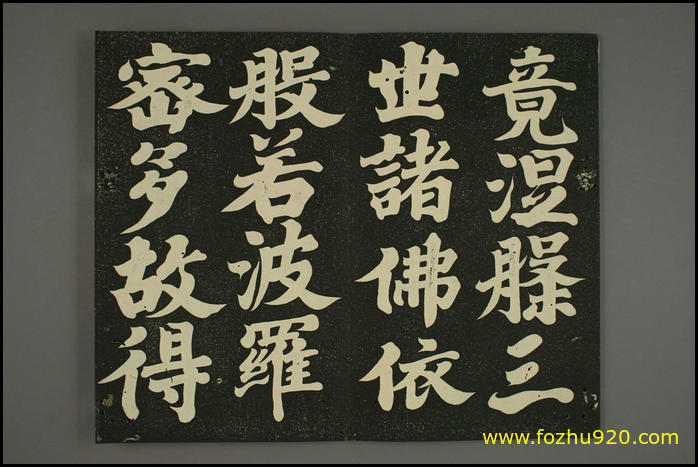 竟涅槃三
世諸佛依
般若波羅
蜜多故得
www.fozhu920.com